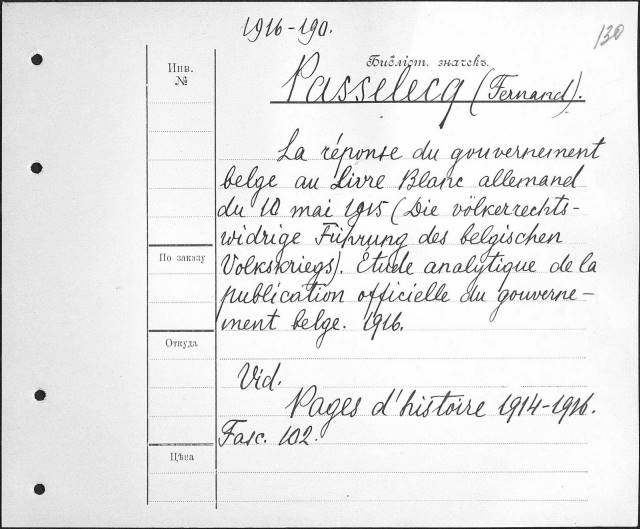 1916-190.
130
Библіот. значекъ.
Инв.
№
Passelecq (Fernand).
La réponse du gouvernement
belge au Livre Blanc allemand
du 10 mai 1915 (Die völkerrechts-
widrige Führung des belgischen
По заказу
Volkskriegs). Étude analytique de la
publication officielle du gouverne-
ment belge. 1916.
Откуда
Vid.
Pages d'histoire 1914-1916.
Fasc. 102.
Цѣна